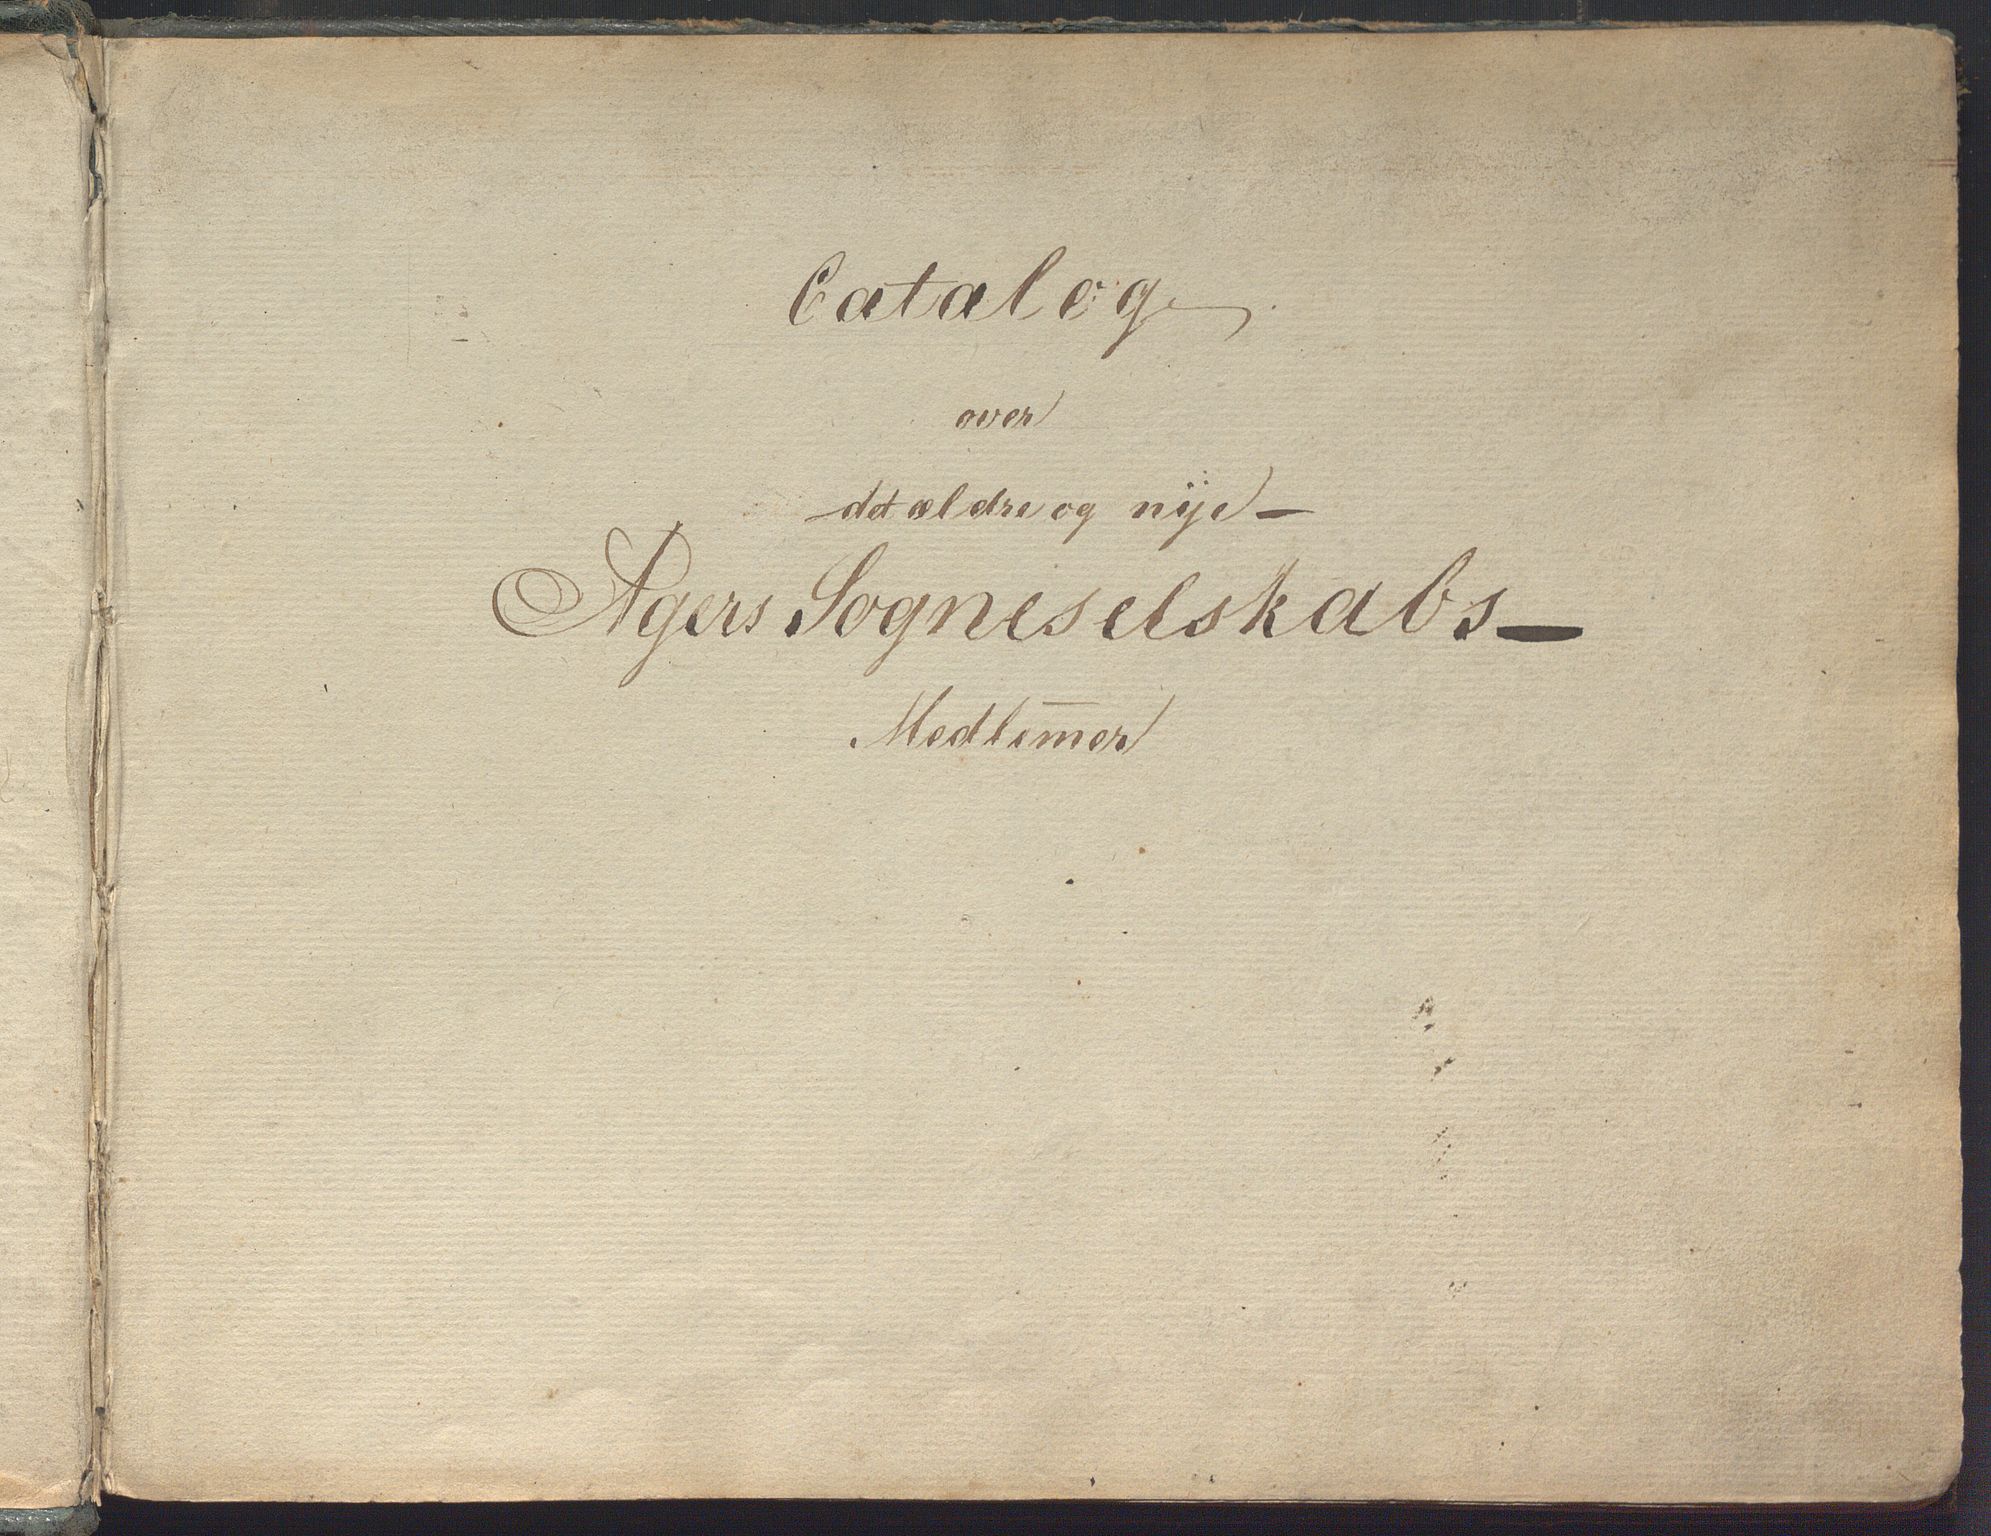 Catalog
over
det ældre og nÿe
Agers Sogneselskabs
Medlem̅er